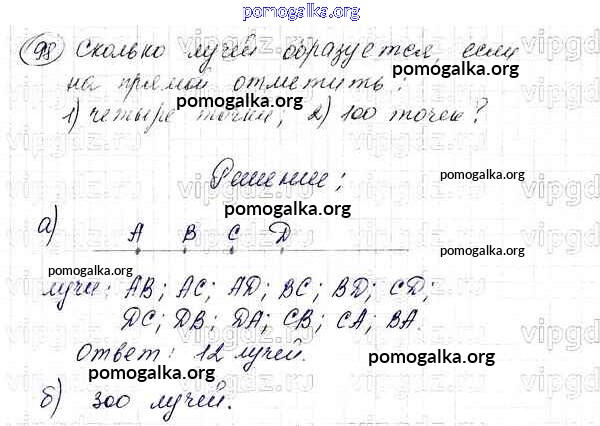 pomogalka.org
98 Сколько лучей образуется, если
pomogalka.org
на прямой отметить:
pomogalka.org
1) четыре точки; 2) 100 точек?
Решение:
pomogalka.org
pomogalka.org
а) A B C D
pomogalka.org
pomogalka.org
лучи: AB; AC; AD; BC; BD; CD;
DC; DB; DA; CB; CA; BA.
Ответ: 12 лучей.
pomogalka.org
pomogalka.org
б) 300 лучей.